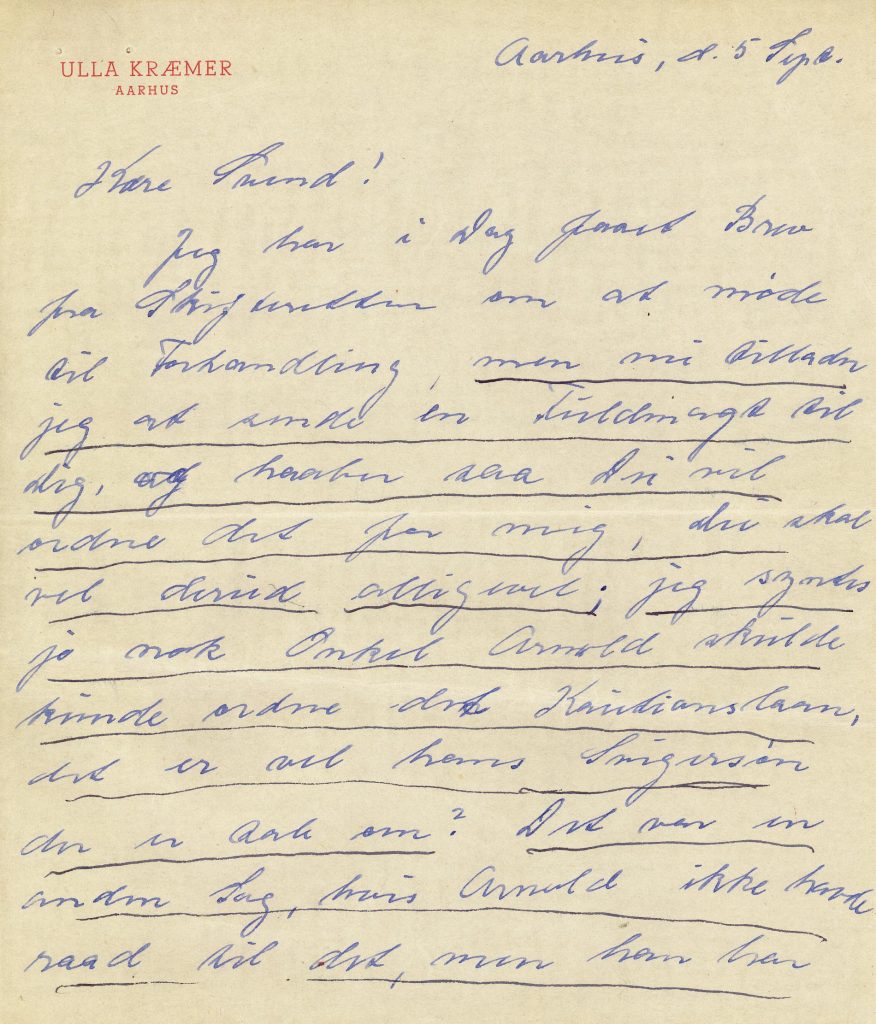 ULLA KRÆMER
AARHUS
Aarhus, d. 5 Sept.
Kære Svend!
Jeg har i Dag faaet Brev
fra Skifteretten om at møde
til Forhandling, men nu tillader
jeg at sende en Fuldmagt til
Dig, og haaber saa Du vil
ordne det for mig, Du skal
vel derud alligevel; jeg syntes
jo nok Onkel Arnold skulde
kunde ordne det Kautionslaan,
det er vel hans Svigersøn
der er Tale om? Det var en
anden Sag, hvis Arnold ikke havde
raad til det, men han har